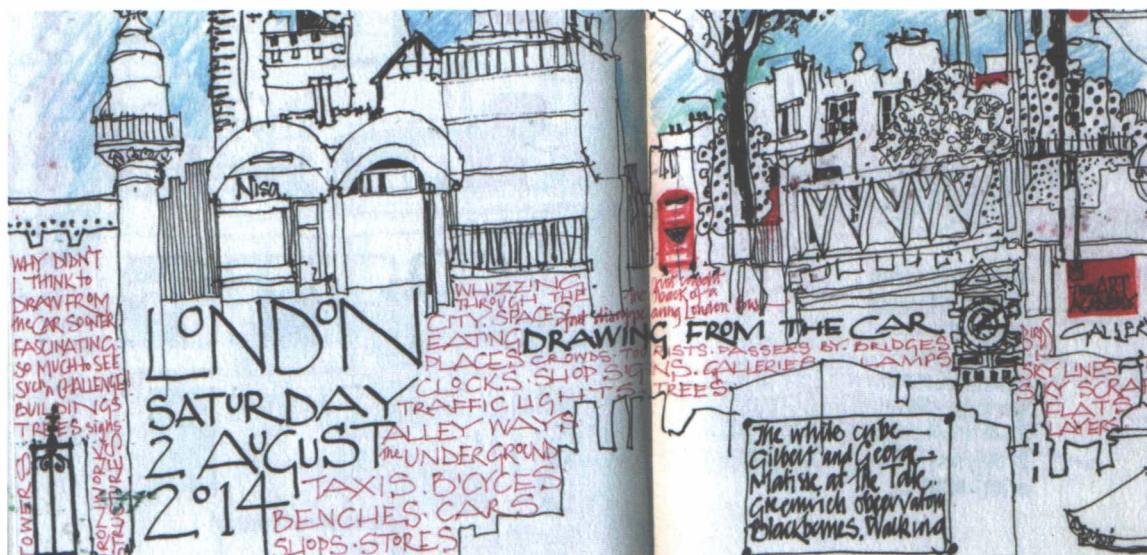 Nisa
WHY DIDN'T
I THINK TO
DRAW FROM
the CAR SOONER
FASCINATING.
SO MUCH TO SEE
SUCH A CHALLENGE!
BUILDINGS
TREES signs
TOWER
IRON WORKS
STRUCTURES
LONDON
SATURDAY
2 AUGUST
2014
WHIZZING
THROUGH THE
CITY. SPACES
EATING
PLACES. CROWDS. TOURISTS. PASSERS BY. BRIDGES
CLOCKS. SHOP SIGNS. GALLERIES. LAMPS
TRAFFIC LIGHTS. TREES
ALLEY WAYS
the UNDERGROUND
TAXIS. B'CYCES
BENCHES. CARS
SHOPS. STORES
the
just caught
back of a
London bus
DRAWING FROM THE CAR
The ART
ACADEMY
GALLE
SKY LINES
SKY SCRA
FLATS
LAYERS
The white cube
Gilbert and George
Matisse at the Tate
Greenwich observatory
Walking